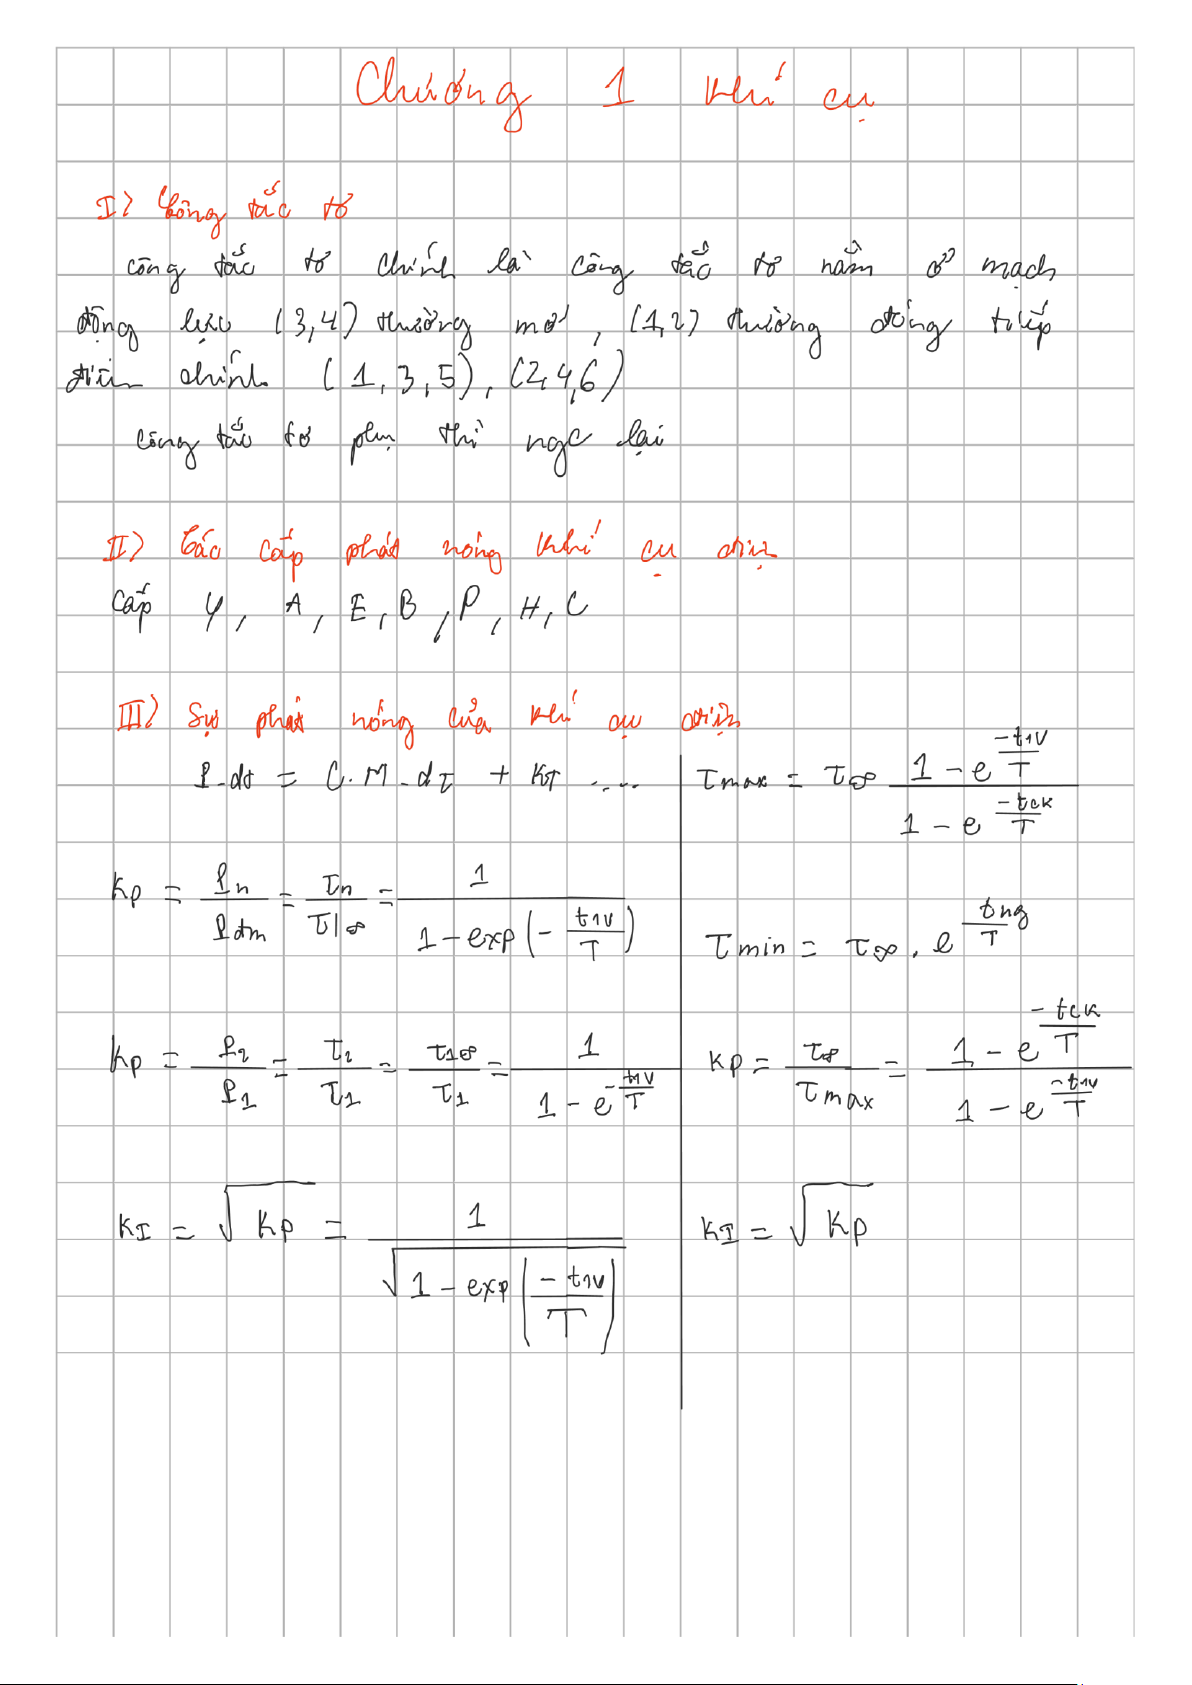 Chương 1 khí cụ
I) Công tắc tơ
công tắc tơ chính là công tắc tơ nằm ở mạch
động lực (3,4) thường mở, (1,2) thường đóng tiếp
điểm chính (1,3,5), (2,4,6)
công tắc tơ phụ thì ngc lại
II) Các cấp phát nóng khí cụ điện
Cấp Y, A, E, B, P, H, C
III) Sự phát nóng của khí cụ điện
P.dt = C.M.dτ + KT ....
Kp = Pn / Pđm = τn / τ|∞ = 1 / (1 - exp(- t1v / T))
Kp = P2 / P1 = τ2 / τ1 = τ1∞ / τ1 = 1 / (1 - e^(-t1v / T))
KI = √Kp = 1 / √(1 - exp(-t1v / T))
τmax = τ∞ (1 - e^(-t1v / T)) / (1 - e^(-tck / T))
τmin = τ∞ . e^(tng / T)
Kp = τ∞ / τmax = (1 - e^(-tck / T)) / (1 - e^(-t1v / T))
KI = √Kp